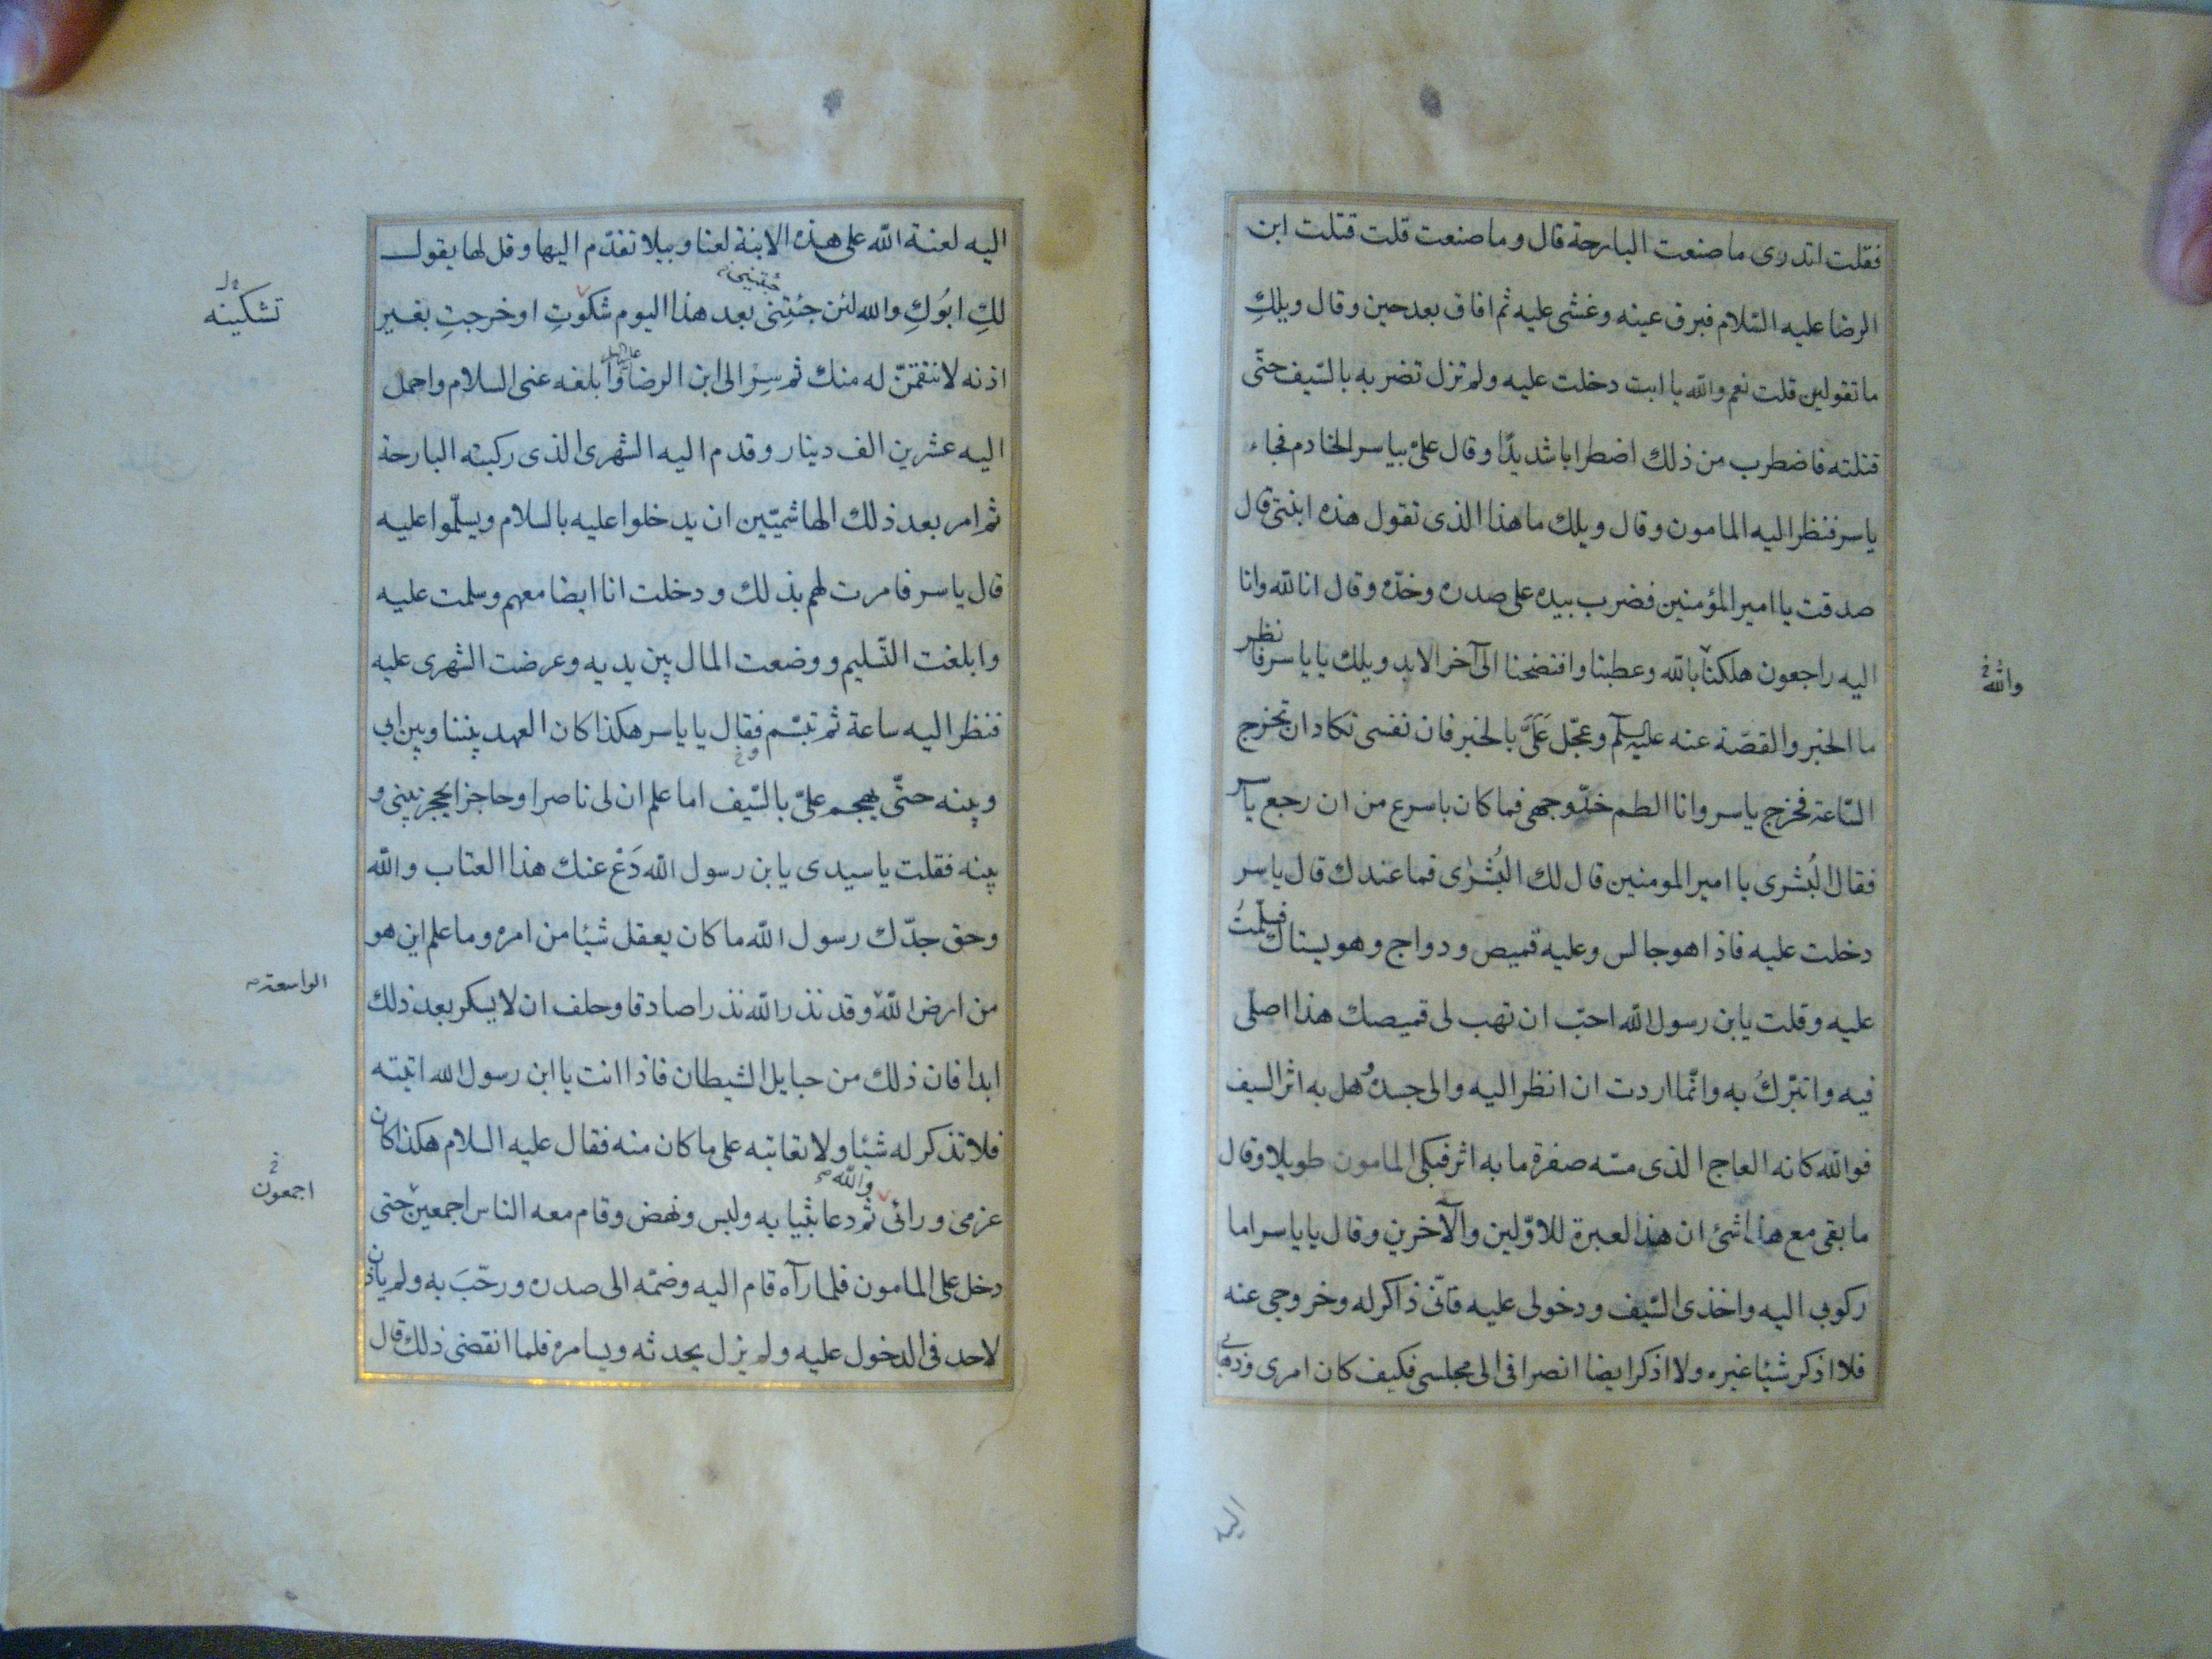 فقلت اتدرى ما صنعت البارحة قال وما صنعت قلت قتلت ابن
الرضا عليه السّلام فبرق عينه وغشى عليه ثم افاق بعد حين وقال ويلكِ
ما تقولين قلت نعم والله يا ابت دخلت عليه ولم تزل تضربه بالسّيف حتّى
قتلته فاضطرب من ذلك اضطرابا شديدًا وقال علىّ بياسر الخادم فجاء
ياسر فنظر اليه المامون وقال ويلك ما هذا الذى تقول هذه ابنتى قال
صدقت يا امير المؤمنين فضرب بيده على صدره وخدّه وقال انا لله وانا
اليه راجعون هلكنا بالله وعطبنا وافتضحنا الى آخر الابد ويلك يا ياسر فانظر
والله خ
ما الخبر والقصّة عنه عليه السلم وعجّل علَىَّ بالخبر فان نفسى تكاد ان تخرج
السّاعة فخرج ياسر وانا الطم خدّ وجهى فما كان باسرع من ان رجع ياسر
فقال البُشرى يا امير المومنين قال لك البُشرٰى فما عندك قال ياسر
دخلت عليه فاذا هو جالس وعليه قميص ودواج وهو يستاك فسلّمتُ
عليه وقلت يابن رسول الله احبّ ان تهب لى قميصك هذا اصلّى
فيه واتبّركُ به وانّما اردت ان انظر اليه والى جسده هل به اثر السيف
فوالله كانه العاج الذى مسّه صفرة ما به اثر فبكى المامون طويلا وقال
ما بقى مع هذا شئ ان هذا لعبرة للاوّلين والآخرين وقال يا ياسر اما
ركوبى اليه واخذى السّيف ودخولى عليه فانّى ذاكر له وخروجى عنه
فلا اذكر شيئا غيره ولا اذكر ايضا انصرافى الى مجلسى فكيف كان امرى وذهابى
اليه
اليه لعنة الله على هذه الابنة لعنا وبيلا تقدّم اليها وقل لها يقول
لكِ ابُوكِ والله لئن جئتِنى بعد هذا اليوم شكوتِ او خرجتِ بغير
تشكينه
اذنه لانتقمنّ له منك ثم سِر الى ابن الرضا وابلغه عنى السلام واحمل
اليه عشرين الف دينار وقدم اليه الشهرى الذى ركبته البارحة
ثم امر بعد ذلك الهاشميّين ان يدخلوا عليه بالسلام ويسلّموا عليه
قال ياسر فامرت لهم بذلك ودخلت انا ايضا معهم وسلمت عليه
وابلغت التّسليم ووضعت المال بين يديه وعرضت الشهرى عليه
فنظر اليه ساعة ثم تبسّم فقال يا ياسر هكذا كان العهد بيننا وبين ابى
وبينه حتّى يهجم علىّ بالسّيف اما علم ان لى ناصرا وحاجزا يحجز بينى و
بينه فقلت يا سيدى يابن رسول الله دَعْ عنك هذا العتاب والله
وحق جدّك رسول الله ما كان يعقل شيئا من امره وما علم اين هو
من ارض الله وقد نذر الله نذرا صادقا وحلف ان لا يسكر بعد ذلك
الواسعة
ابدا فان ذلك من حبايل الشيطان فاذا انت يا ابن رسول الله اتيته
فلا تذكر له شيئا ولا تعاتبه على ما كان منه فقال عليه السلام هكذا كان
والله
عزمى ورائى ثم دعا بثيابه ولبس ونهض وقام معه الناس اجمعين حتى
اجمعون خ
دخل على المامون فلما رآه قام اليه وضمّه الى صدره ورحّبَ به ولم ياذن
لاحد فى الدخول عليه ولم يزل يحدثه ويسامره فلما انقضى ذلك قال